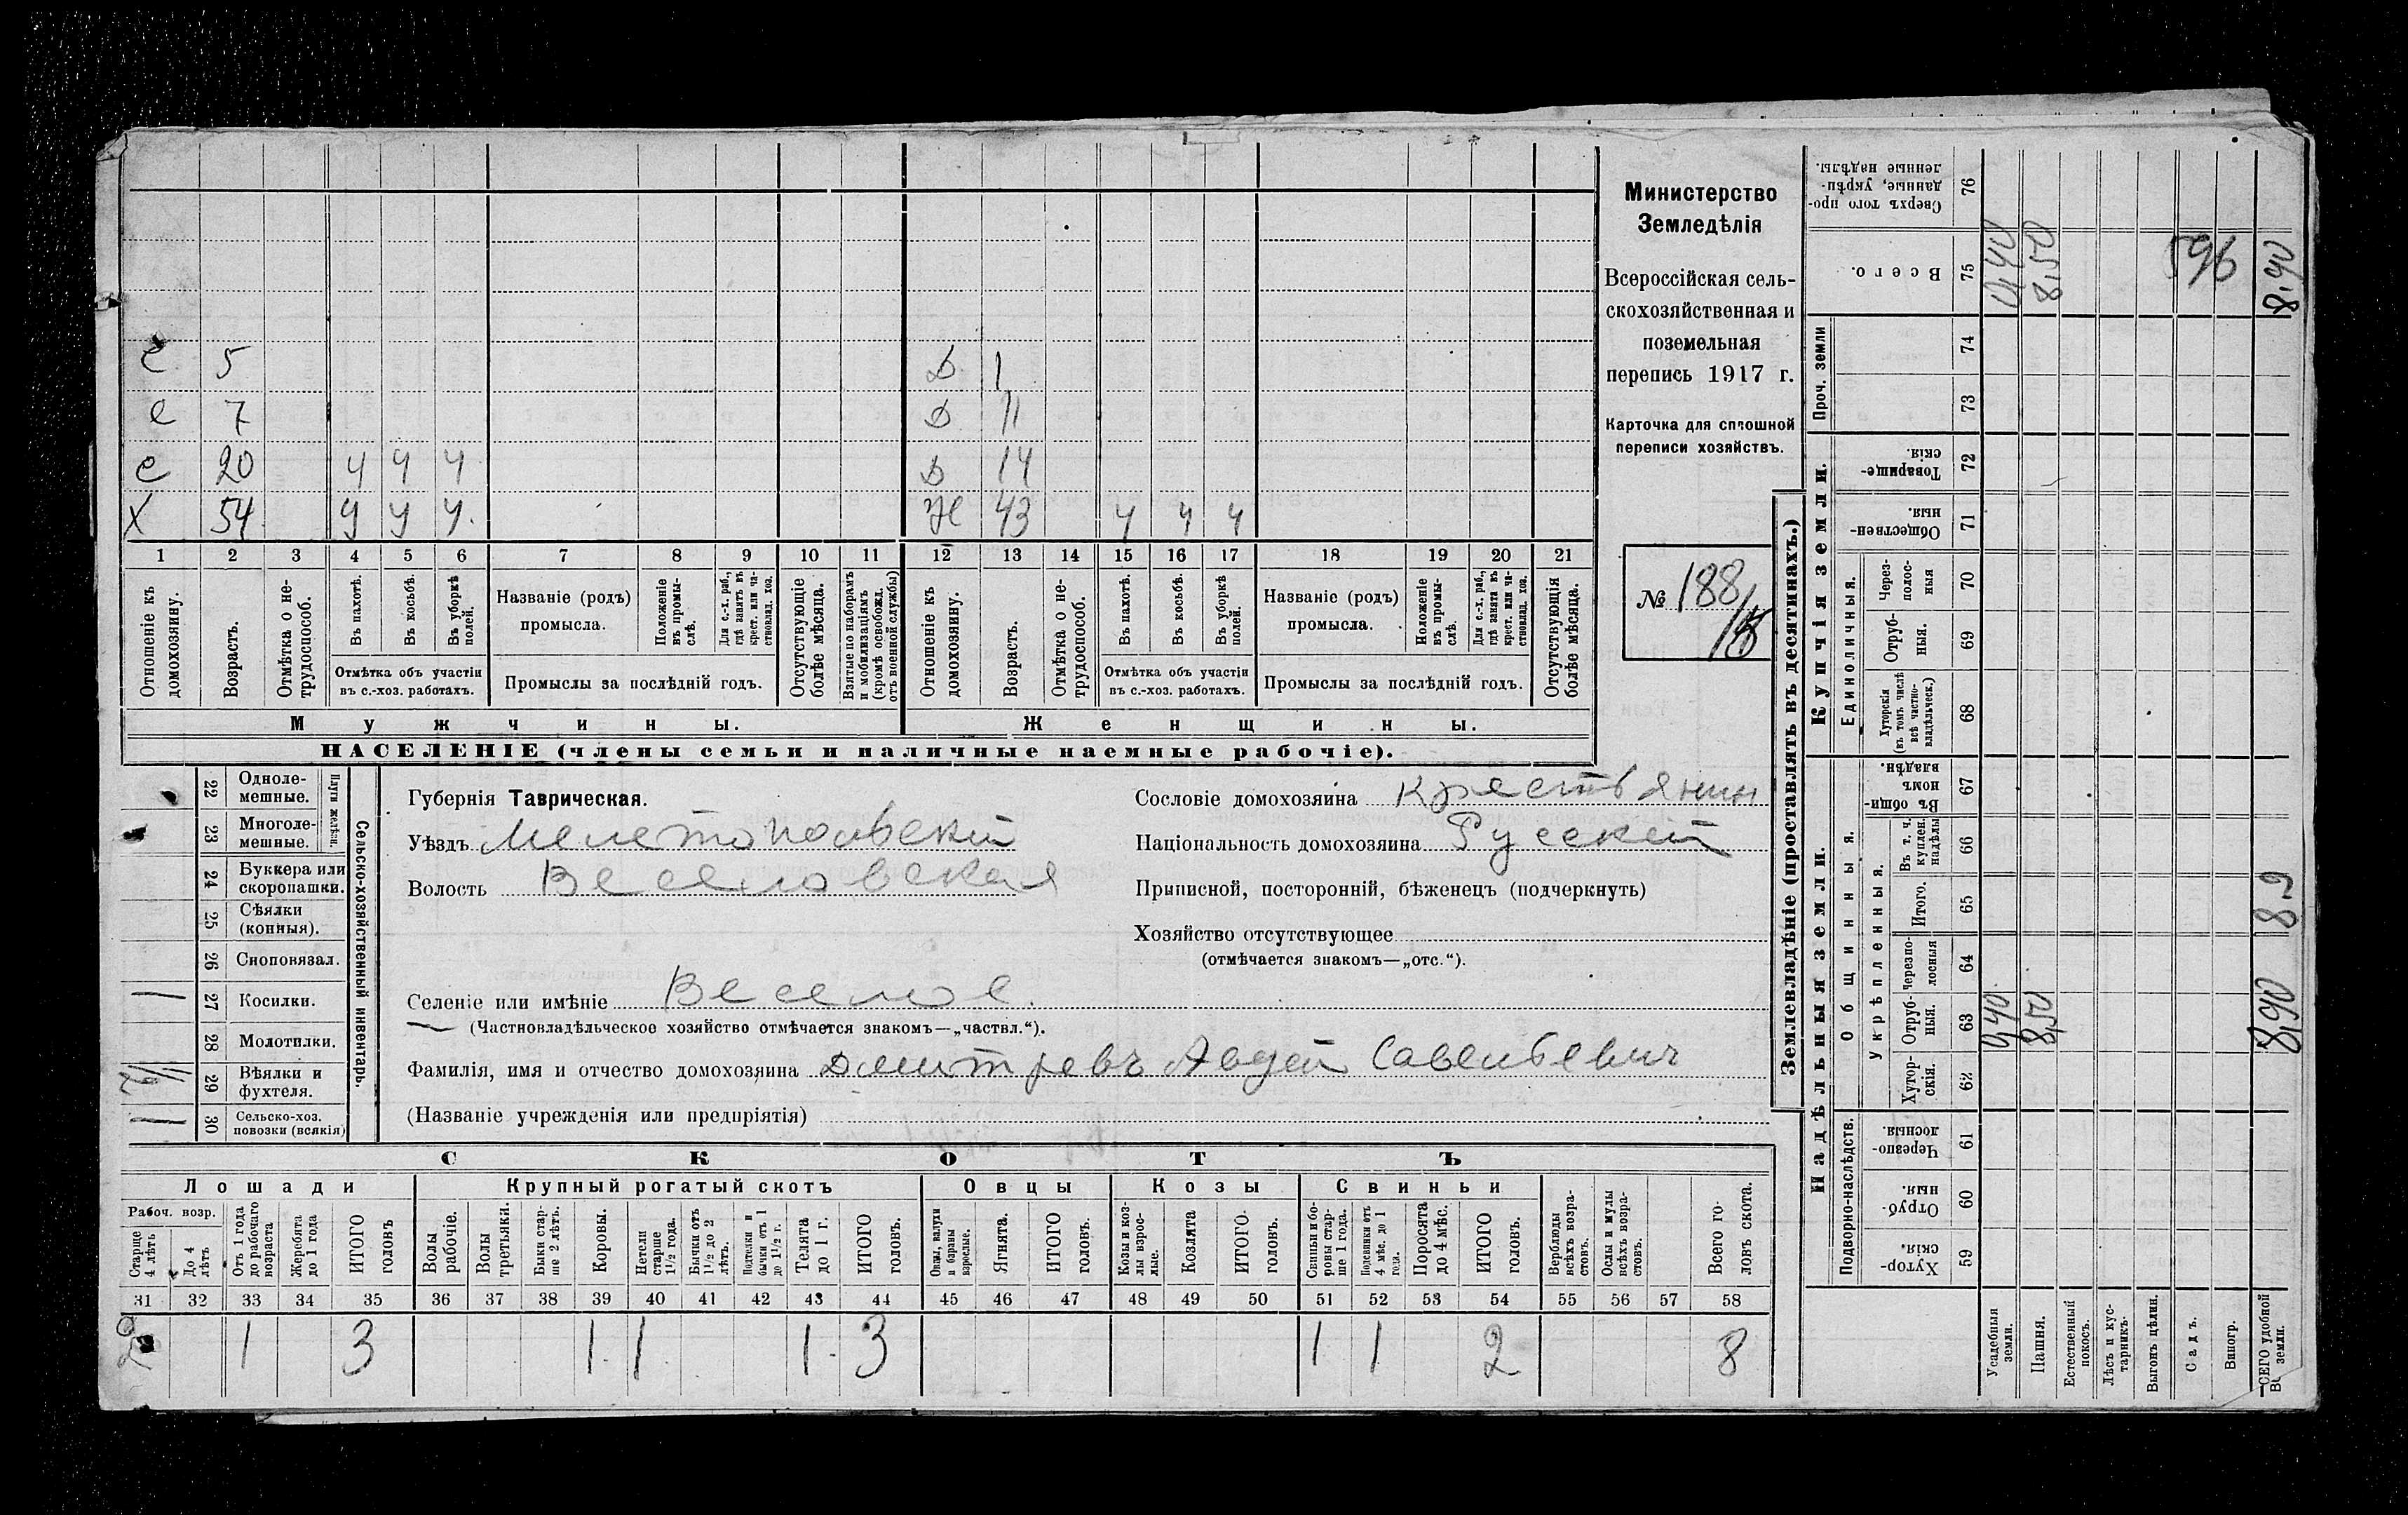 С 5 Д 1
С 7 Д 11
С 20 У У У Д 14
Х 54 У У У Ж 43 У У У
1 2 3 4 5 6 7 8 9 10 11 12 13 14 15 16 17 18 19 20 21
Отношеніе къ домохозяину.
Возрастъ.
Отмѣтка о не-
трудоспособ.
Въ пахотѣ.
Въ косьбѣ.
Въ уборкѣ
полей.
Отмѣтка объ участіи
въ с.-хоз. работахъ.
Названіе (родъ)
промысла.
Положеніе
въ промы-
слѣ.
Для с.-х. раб.,
гдѣ занятъ въ
крест. или ча-
стновлад. хоз.
Промыслы за послѣдній годъ.
Отсутствующіе
болѣе мѣсяца.
Взятые по наборамъ
и мобилизаціямъ
(кромѣ освобожд.
отъ военной службы)
Отношеніе къ
домохозяину.
Возрастъ.
Отмѣтка о не-
трудоспособ.
Въ пахотѣ.
Въ косьбѣ.
Въ уборкѣ
полей.
Отмѣтка объ участіи
въ с.-хоз. работахъ.
Названіе (родъ)
промысла.
Положеніе
въ промы-
слѣ.
Для с.-х. раб.,
гдѣ занята въ
крест. или ча-
стновлад. хоз.
Промыслы за послѣдній годъ.
Отсутствующія
болѣе мѣсяца.
Мужчины.
Женщины.
НАСЕЛЕНІЕ (члены семьи и наличные наемные рабочіе).
Министерство
Земледѣлія
Всероссійская сель-
скохозяйственная и
поземельная
перепись 1917 г.
Карточка для сплошной
переписи хозяйствъ.
№ 188
22 Одноле-
мешные.
23 Многоле-
мешные.
Плуги желѣзн.
24 Буккера или
скоропашки.
25 Сѣялки
(конныя).
26 Сноповязал.
27 Косилки.
28 Молотилки.
29 Вѣялки и
фухтеля.
30 Сельско-хоз.
повозки (всякія)
Сельско-хозяйственный инвентарь.
Губернія Таврическая.
Уѣздъ Мелетопольскій
Волость Веселовская
Сословіе домохозяина крестьянин
Національность домохозяина Русскій
Приписной, посторонній, бѣженецъ (подчеркнуть)
Хозяйство отсутствующее
(отмѣчается знакомъ—„отс.“).
Селеніе или имѣніе Веселое.
(Частновладѣльческое хозяйство отмѣчается знакомъ—„частвл.“).
Фамилія, имя и отчество домохозяина Дмитревъ Авдей Савельевич
(Названіе учрежденія или предпріятія)
СКОТЪ
Лошади
Крупный рогатый скотъ
Овцы
Козы
Свиньи
Рабоч. возр.
Старше
4 лѣтъ
До 4
лѣтъ
Отъ 1 года
до рабочаго
возраста
Жеребята
до 1 года
ИТОГО
головъ
Волы
рабочіе.
Волы
третьяки.
Быки стар-
ше 2 лѣтъ.
Коровы.
Нетели
старше
1½ года.
Бычки отъ
1½ до 2
лѣтъ.
Подтелки и
бычки отъ 1
до 1½ г.
Телята
до 1 г.
ИТОГО
головъ.
Овцы, валухи
и бараны
взрослые.
Ягнята.
ИТОГО
головъ.
Козы и коз-
лы взрос-
лые.
Козлята
ИТОГО
головъ.
Свиньи и бо-
ровы стар-
ше 1 года.
Подсвинки отъ
4 мѣс. до 1
года.
Поросята
до 4 мѣс.
ИТОГО
головъ.
Верблюды
всѣхъ возра-
стовъ.
Ослы и мулы
всѣхъ возра-
стовъ.
Всего го-
ловъ скота.
31 32 33 34 35 36 37 38 39 40 41 42 43 44 45 46 47 48 49 50 51 52 53 54 55 56 57 58
2 1 3 1 1 1 3 1 1 2 8
Землевладѣніе (проставлять въ десятинахъ.)
Купчія земли.
Надѣльныя земли.
Сверхъ того про-
данные, укрѣп-
ленные надѣлы.
76
Всего.
75
0,40
8,50
596
8,90
Проч. земли
74
73
Товарище-
скія.
72
Обществен-
ныя.
71
Единоличныя.
Черезполос-
ныя
70
Отруб-
ныя.
69
Хуторскія
(въ томъ числѣ
всѣ частно-
владѣльческ.)
68
Общинныя.
Въ общин-
номъ
владѣн.
67
Укрѣпленныя.
Въ т. ч.
куплен.
надѣлы
66
Итого.
65
8.9
черезпо-
лосныя
64
Отруб-
ныя.
63
0,40
8,50
8,90
Хутор-
скія.
62
Подворно-наслѣдств.
Черезпо-
лосныя.
61
Отруб-
ныя.
60
Хутор-
скія.
59
Усадебныя
земли.
Пашня.
Естественный
покосъ.
Лѣсъ и кус-
тарникъ.
Выгонъ цѣлин.
Садъ.
Виногр.
ВСЕГО удобной
земли.